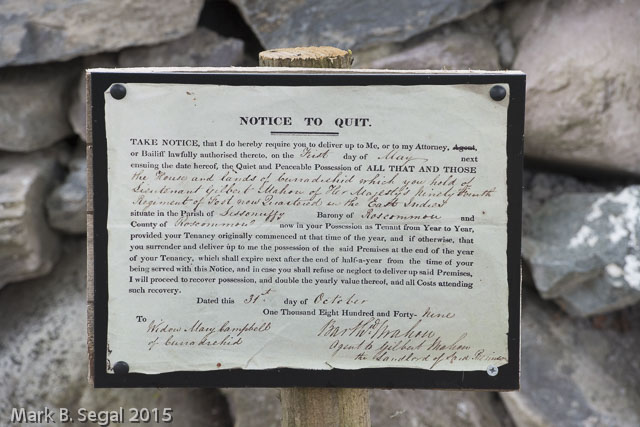 NOTICE TO QUIT.
TAKE NOTICE, that I do hereby require you to deliver up to Me, or to my Attorney, Agent,
or Bailiff lawfully authorised thereto, on the First day of May next
ensuing the date hereof, the Quiet and Peaceable Possession of ALL THAT AND THOSE
the House and Lands of Curradrehid which you hold of
Lieutenant Gilbert Mahon of Her Majesty's Ninety Fourth
Regiment of Foot now Quartered in the East Indies
situate in the Parish of Lissonuffy Barony of Roscommon and
County of Roscommon now in your Possession as Tenant from Year to Year,
provided your Tenancy originally commenced at that time of the year, and if otherwise, that
you surrender and deliver up to me the possession of the said Premises at the end of the year
of your Tenancy, which shall expire next after the end of half-a-year from the time of your
being served with this Notice, and in case you shall refuse or neglect to deliver up said Premises,
I will proceed to recover possession, and double the yearly value thereof, and all Costs attending
such recovery.
Dated this 31st day of October
One Thousand Eight Hundred and Forty- nine
To
Widow Mary Campbell
of Curradrehid
Mahon
Agent to Gilbert Mahon
the Landlord of said
Mark B. Segal 2015